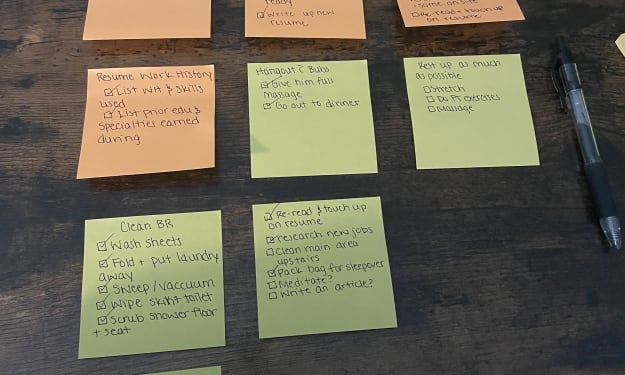 ready
☑ Write up new
resume
· some on site
☑ Re-read + touch up
on resume
Resume Work History
☑ List WH & Skills
used
☑ List prior edu &
Specialties earned
during
Hangout c̄ Bubs
☑ Give him full
massage
☑ Go out to dinner
Rest up as much
as possible
☐ Stretch
☐ Do PT exercises
☐ Massage
Clean BR
☑ Wash sheets
☑ Fold + put laundry
away
☑ Sweep/vaccuum
☑ Wipe sink + toilet
☑ Scrub shower floor
+ seat
☑ Re-read & touch up
on resume
☑ research new jobs
☐ Clean main area
upstairs
☑ Pack bag for sleepover
☐ Meditate?
☐ Write an article?